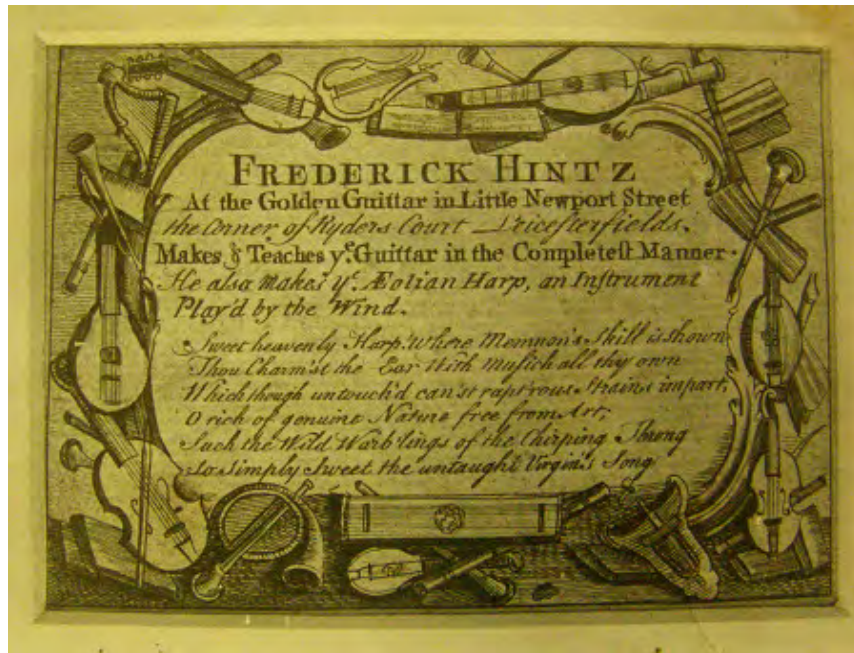 FREDERICK HINTZ
At the Golden Guittar in Little Newport Street
the Corner of Ryders Court Leicesterfields.
Makes & Teaches yᵉ. Guittar in the Compleatest Manner.
He also makes yᵉ. Æolian Harp, an Instrument
Play'd by the Wind.
Sweet heavenly Harp! where Memnon's skill is shown
Thou Charm'st the Ear With Musick all thy own
Which though untouch'd can'st rapt'rous Strains impart,
O rich of genuine Nature free from Art;
Such the Wild Warb'lings of the Chirping Throng
So simply Sweet the untaught Virgin's Song